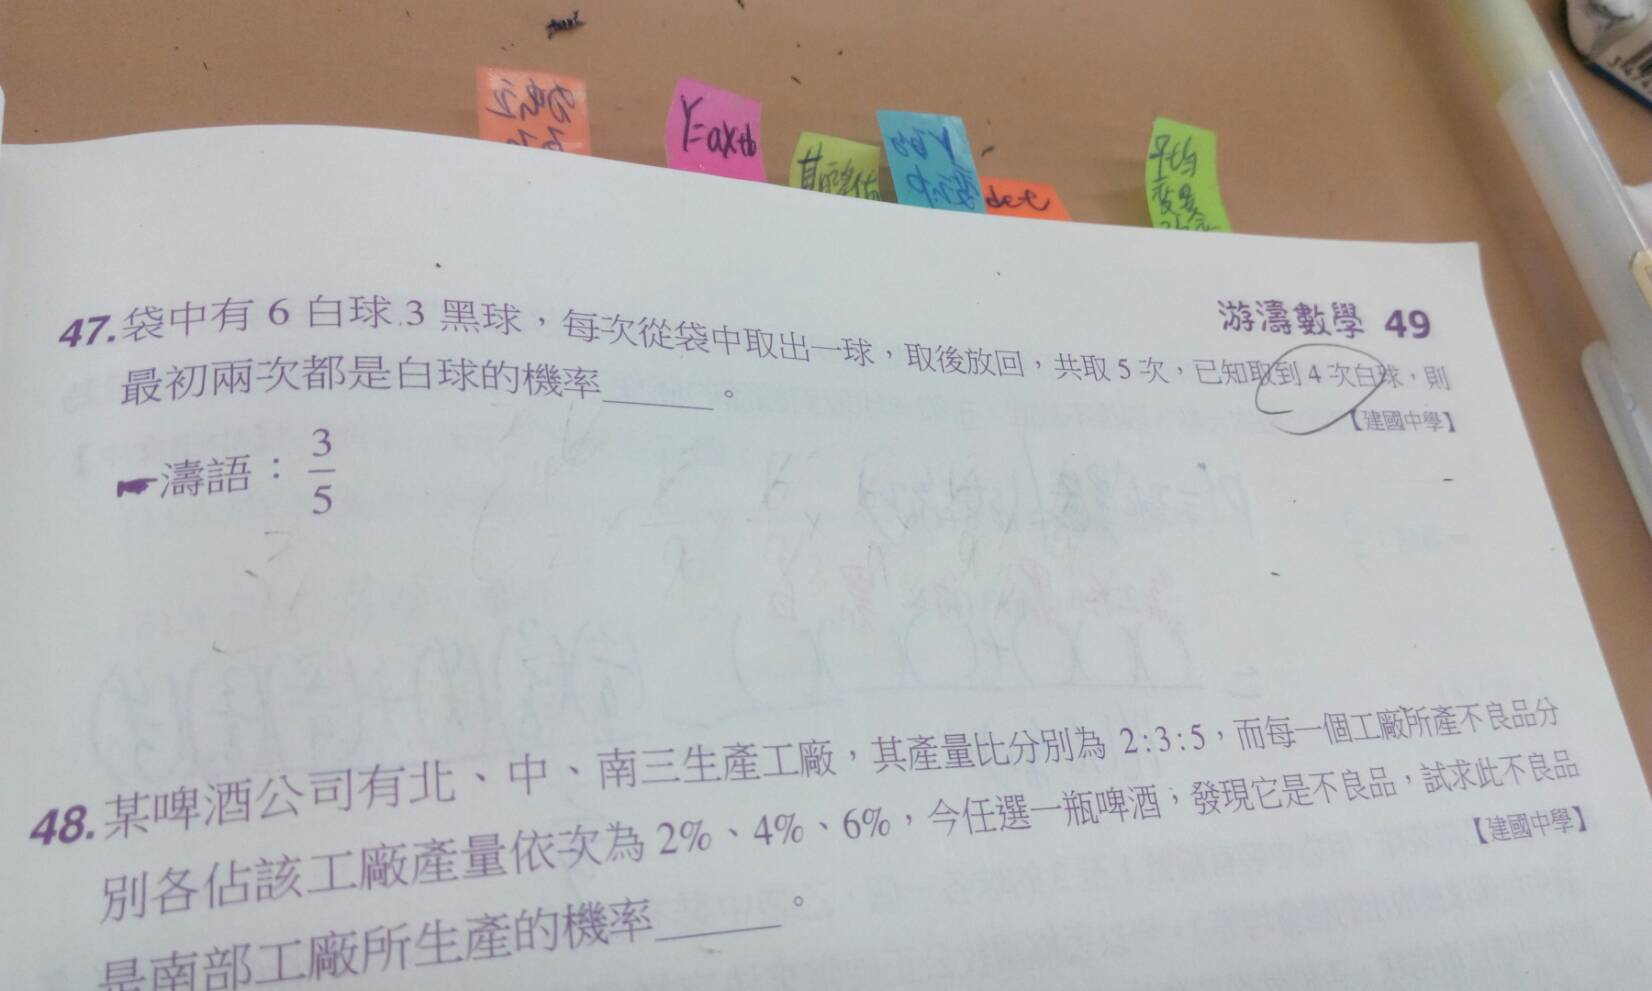 Y=ax+b
det
平均
游濤數學 49
47.袋中有 6 白球 3 黑球，每次從袋中取出一球，取後放回，共取 5 次，已知取到 4 次白球，則
最初兩次都是白球的機率______。
【建國中學】
濤語：3/5
48.某啤酒公司有北、中、南三生產工廠，其產量比分別為 2:3:5，而每一個工廠所產不良品分
別各佔該工廠產量依次為 2%、4%、6%，今任選一瓶啤酒，發現它是不良品，試求此不良品
是南部工廠所生產的機率______。
【建國中學】